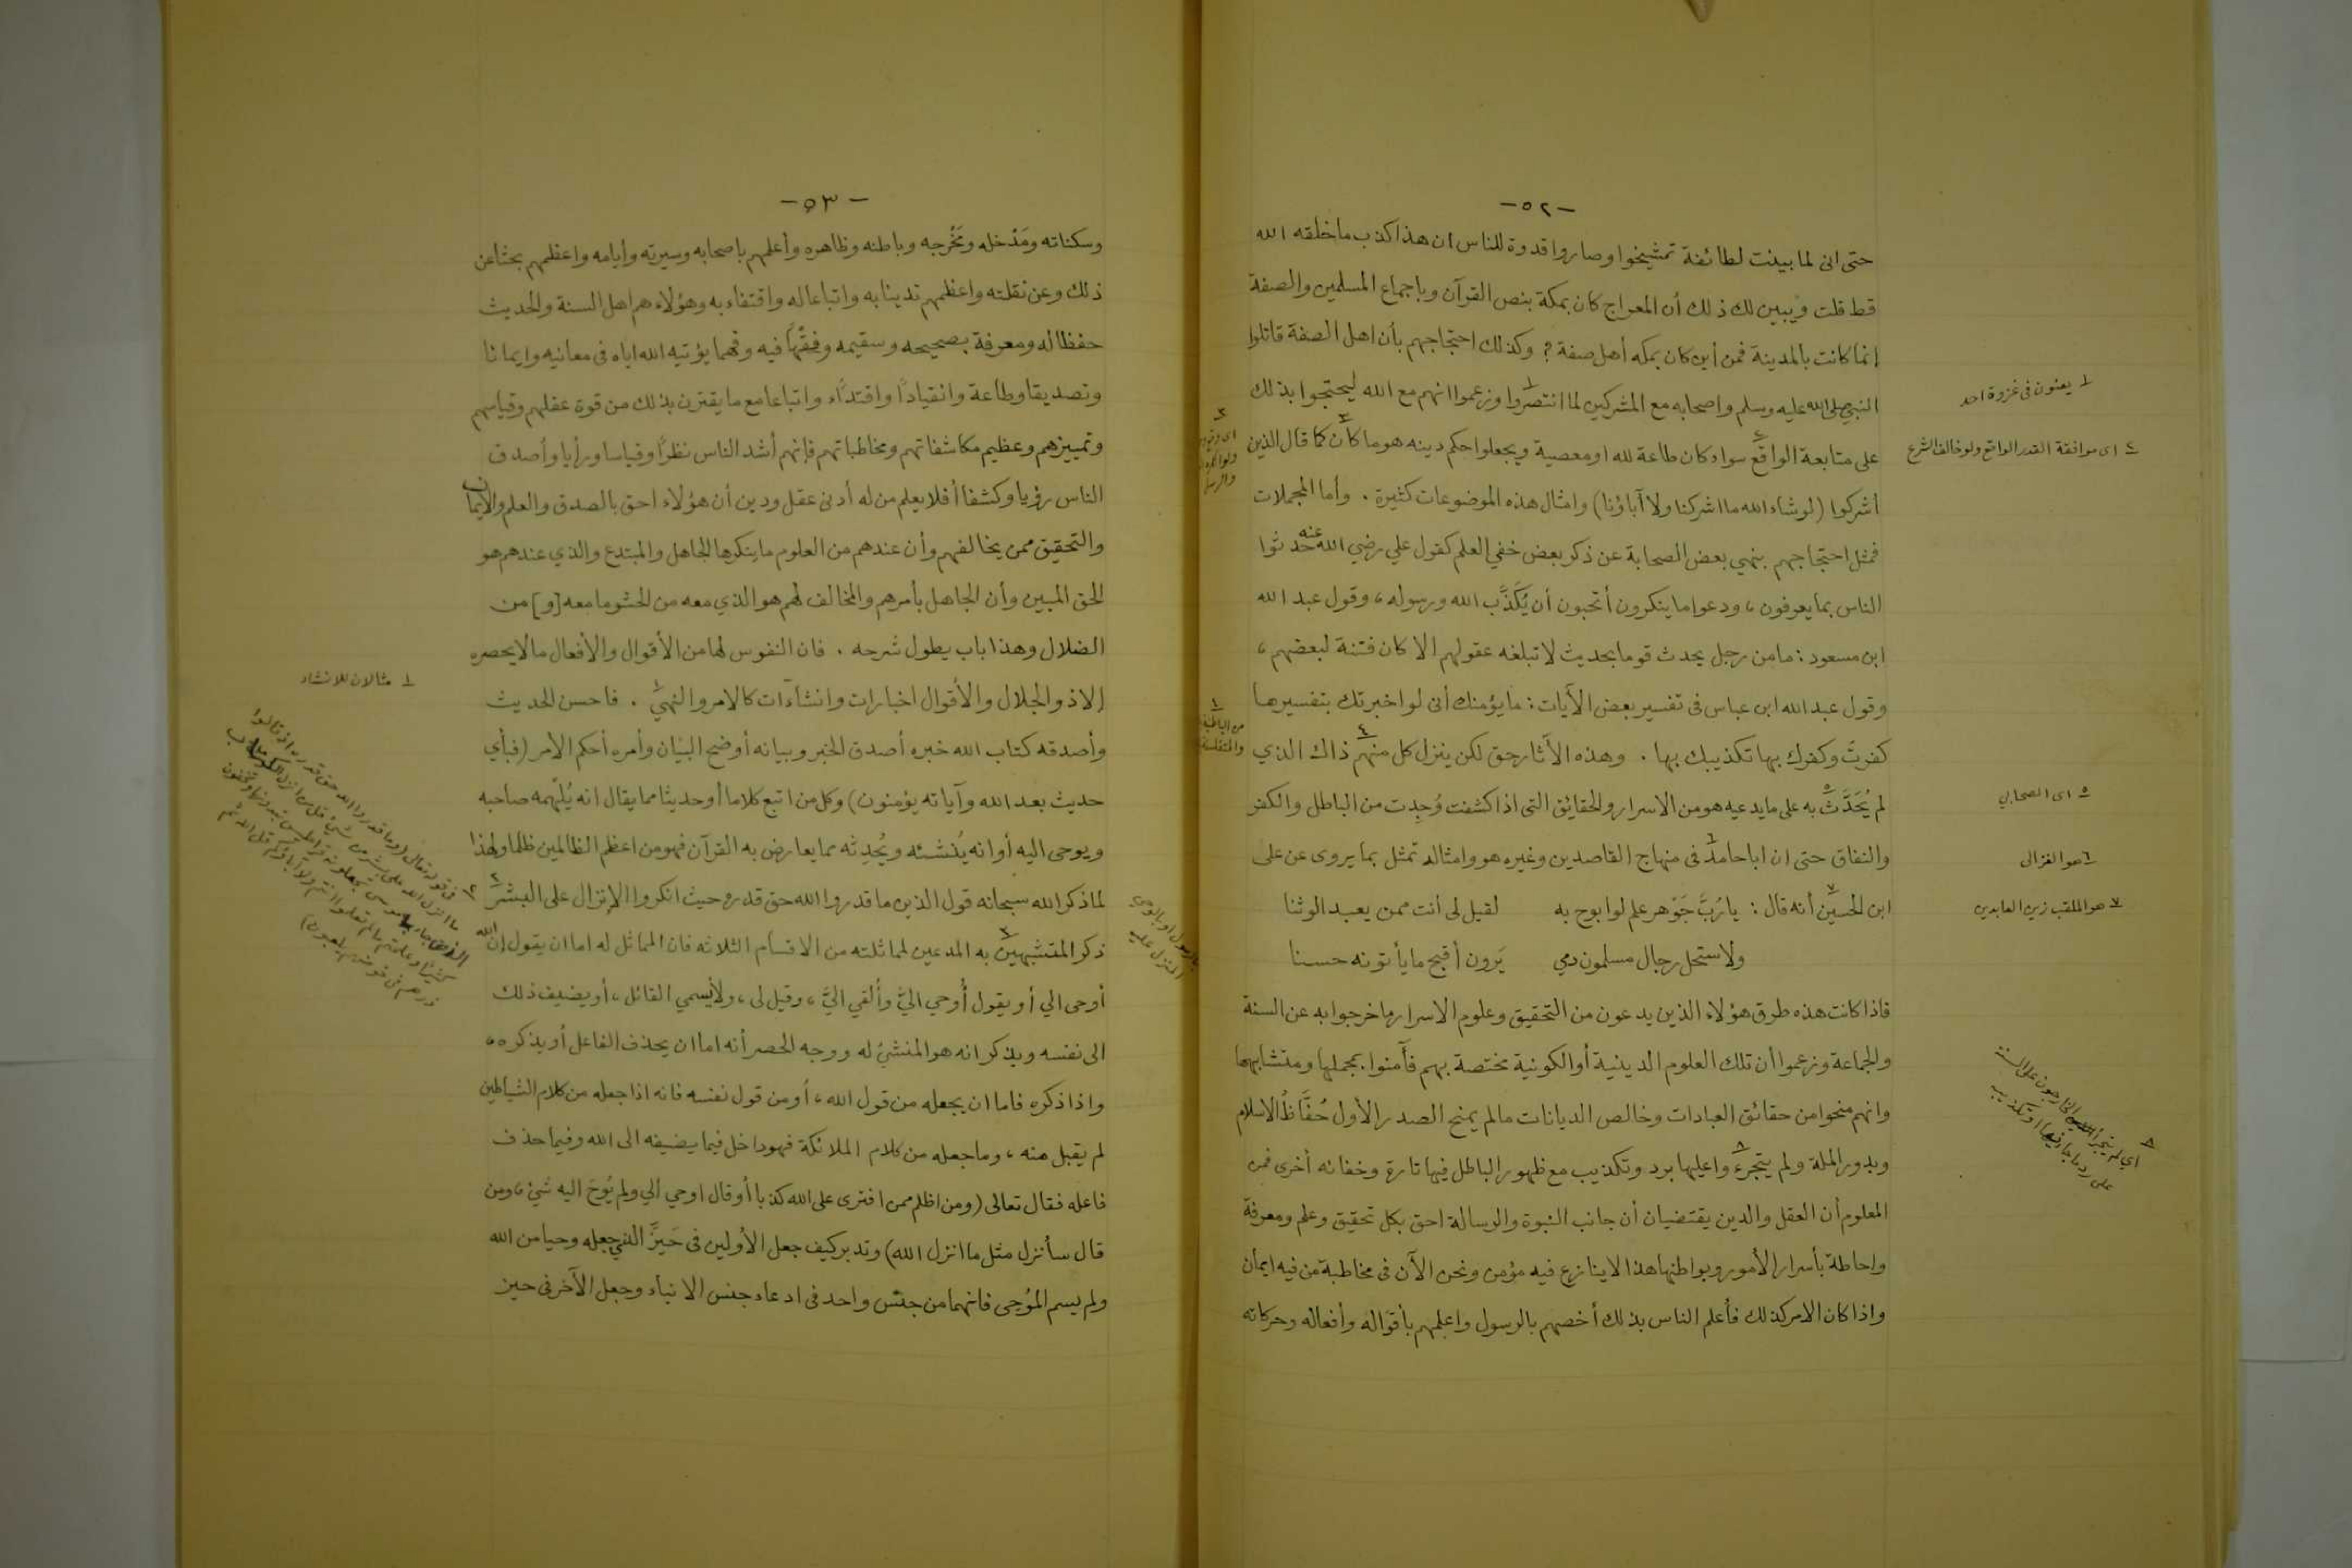 -٥٢-
حتى انى لما بينت لطائفة تمشيخوا وصاروا قدوة للناس ان هذا كذب ما خلقه الله
قط قلت ويبين لك ذلك أن المعراج كان بمكة بنص القرآن وبإجماع المسلمين والصفة
إنما كانت بالمدينة فمن أين كان بمكه أهل صفة ؟ وكذلك احتجاجهم بأن اهل الصفة قاتلوا
النبي صلى الله عليه وسلم واصحابه مع المشركين لما انتصروا ١ وزعموا انهم مع الله ليحتجوا بذلك
على متابعة الواقع ٢ سواء كان طاعة لله او معصية ويجعلوا حكم دينه هو ما كان ٣ كما قال الذين
أشركوا (لو شاء الله ما اشركنا ولا آباؤنا) وامثال هذه الموضوعات كثيرة . وأما المجملات
فمثل احتجاجهم بنهي بعض الصحابة عن ذكر بعض خفي العلم كقول علي رضي الله عنه حدثوا
الناس بما يعرفون ، ودعوا ما ينكرون أتحبون أن يُكَذَّب الله ورسوله ، وقول عبد الله
ابن مسعود : ما من رجل يحدث قوما بحديث لا تبلغه عقولهم الا كان فتنة لبعضهم ،
وقول عبد الله ابن عباس فى تفسير بعض الآيات : ما يؤمنك أنى لو اخبرتك بتفسيرها
كفرتَ وكفرك بها تكذيبك بها . وهذه الآثار حق لكن ينزل كل منهم ٤ ذاك الذي
لم يُحَدَّثْ ٥ به على ما يدعيه هو من الاسرار والحقايق التى اذا كشفت وُجِدت من الباطل والكفر
والنفاق حتى ان ابا حامد ٦ فى منهاج القاصدين وغيره هو وامثاله تمثل بما يروى عن على
ابن الحسين ٧ أنه قال : يا رُبَّ جَوْهر علم لو ابوح به لقيل لى أنت ممن يعبد الوثنا
ولاستحل رجال مسلمون دمي يَرون أقبح ما يأتونه حسنا
فاذا كانت هذه طرق هؤلاء الذين يدعون من التحقيق وعلوم الاسرار ما خرجوا به عن السنة
والجماعة وزعموا أن تلك العلوم الدينية أو الكونية مختصة بهم فآمنوا بمجملها ومتشابهها
وانهم منحوا من حقائق العبادات وخالص الديانات ما لم يمنح الصدر الأول حُفَّاظُ الاسلام
وبدور الملة ولم يتجرءوا ٨ عليها برد وتكذيب مع ظهور الباطل فيها تارة وخفائه أخرى فمن
المعلوم أن العقل والدين يقتضيان أن جانب النبوة والرسالة احق بكل تحقيق وعلم ومعرفة
واحاطة بأسرار الأمور وبواطنها هذا لا ينازع فيه مؤمن ونحن الآن فى مخاطبة من فيه ايمان
واذا كان الامر كذلك فأعلم الناس بذلك أخصهم بالرسول واعلمهم بأقواله وأفعاله وحركاته
١ يعنون فى غزوة احد
٢ اى موافقة القدر الواقع ولو خالف الشرع
٤ من الباطنية
والمتفلسفة
٥ اى الصحابي
٦ هو الغزالى
٧ هو الملقب زين العابدين
٨ اي لم يتجرأ الخارجون على السنة
على رد ما جاء فيها او تكذيبه
-٥٣-
وسكناته ومَدْخله ومَخْرجه وباطنه وظاهره وأعلمهم باصحابه وسيرته وأيامه واعظمهم بحثا عن
ذلك وعن نقلته واعظمهم تدينا به واتباعا له واقتفاء به وهؤلاء هم اهل السنة والحديث
حفظا له ومعرفة بصحيحه وسقيمه وفقهًا فيه وفهما يؤتيه الله اياه فى معانيه وايمانا
وتصديقا وطاعة وانقيادًا واقتداًء واتباعا مع ما يقترن بذلك من قوة عقلهم وقياسهم
وتمييزهم وعظيم مكاشفاتهم ومخاطباتهم فإنهم أشد الناس نظرًا وقياسا ورأيا وأصدق
الناس رؤيا وكشفا أفلا يعلم من له أدنى عقل ودين أن هؤلاء احق بالصدق والعلم والايمان
والتحقيق ممن يخالفهم وأن عندهم من العلوم ما ينكرها الجاهل والمبتدع والذي عندهم هو
الحق المبين وأن الجاهل بأمرهم والمخالف لهم هو الذي معه من الحشو ما معه [و] من
الضلال وهذا باب يطول شرحه . فان النفوس لها من الأقوال والأفعال ما لا يحصره
إلا ذو الجلال والأقوال اخبارات وانشاآت كالامر والنهي ١ . فاحسن الحديث
وأصدقه كتاب الله خبره أصدق الخبر وبيانه أوضح البيان وأمره أحكم الأمر (فبأي
حديث بعد الله وآياته يؤمنون) وكل من اتبع كلاما أو حديثا مما يقال انه يُلهمه صاحبه
ويوحى اليه أو انه يُنشئه ويُحدِثه مما يعارض به القرآن فهو من اعظم الظالمين ظلما ولهذا
لما ذكر الله سبحانه قول الذين ما قدروا الله حق قدره حيث انكروا الإنزال على البشر ٢
ذكر المتشبهين ٣ به المدعين لمماثلته من الاقسام الثلاثه فان المماثل له اما ان يقول إن الله
أوحى الي أو يقول أُوحي اليَّ وأُلقي اليَّ ، وقيل لى ، ولا يسمي القائل ، أو يضيف ذلك
الى نفسه ويذكر انه هو المنشئ له ووجه الحصر أنه اما ان يحذف الفاعل أو يذكره ،
واذا ذكره فاما ان يجعله من قول الله ، أو من قول نفسه فانه اذا جعله من كلام الشياطين
لم يقبل منه ، وما جعله من كلام الملائكة فهو داخل فيما يضيفه الى الله وفيما حذف
فاعله فقال تعالى (ومن اظلم ممن افترى على الله كذبا أو قال اوحي الي ولم يُوحَ اليه شئ ، ومن
قال سأنزل مثل ما انزل الله) وتدبر كيف جعل الأولين فى حَيزَّ الذي جعله وحيا من الله
ولم يسم المُوحى فانهما من جنس واحد فى ادعاء جنس الانباء وجعل الآخر فى حيز
١ مثالان للانشاء
٢ فى قوله تعالى (وما قدروا الله حق قدره اذ قالوا
ما انزل الله على بشر من شئ قل من انزل الكتاب
الذى جاء به موسى تجعلونه قراطيس تبدونها وتخفون
كثيرًا وعلمتم ما لم تعلموا انتم ولا آباؤكم قل الله ثم
ذرهم فى خوضهم يلعبون)